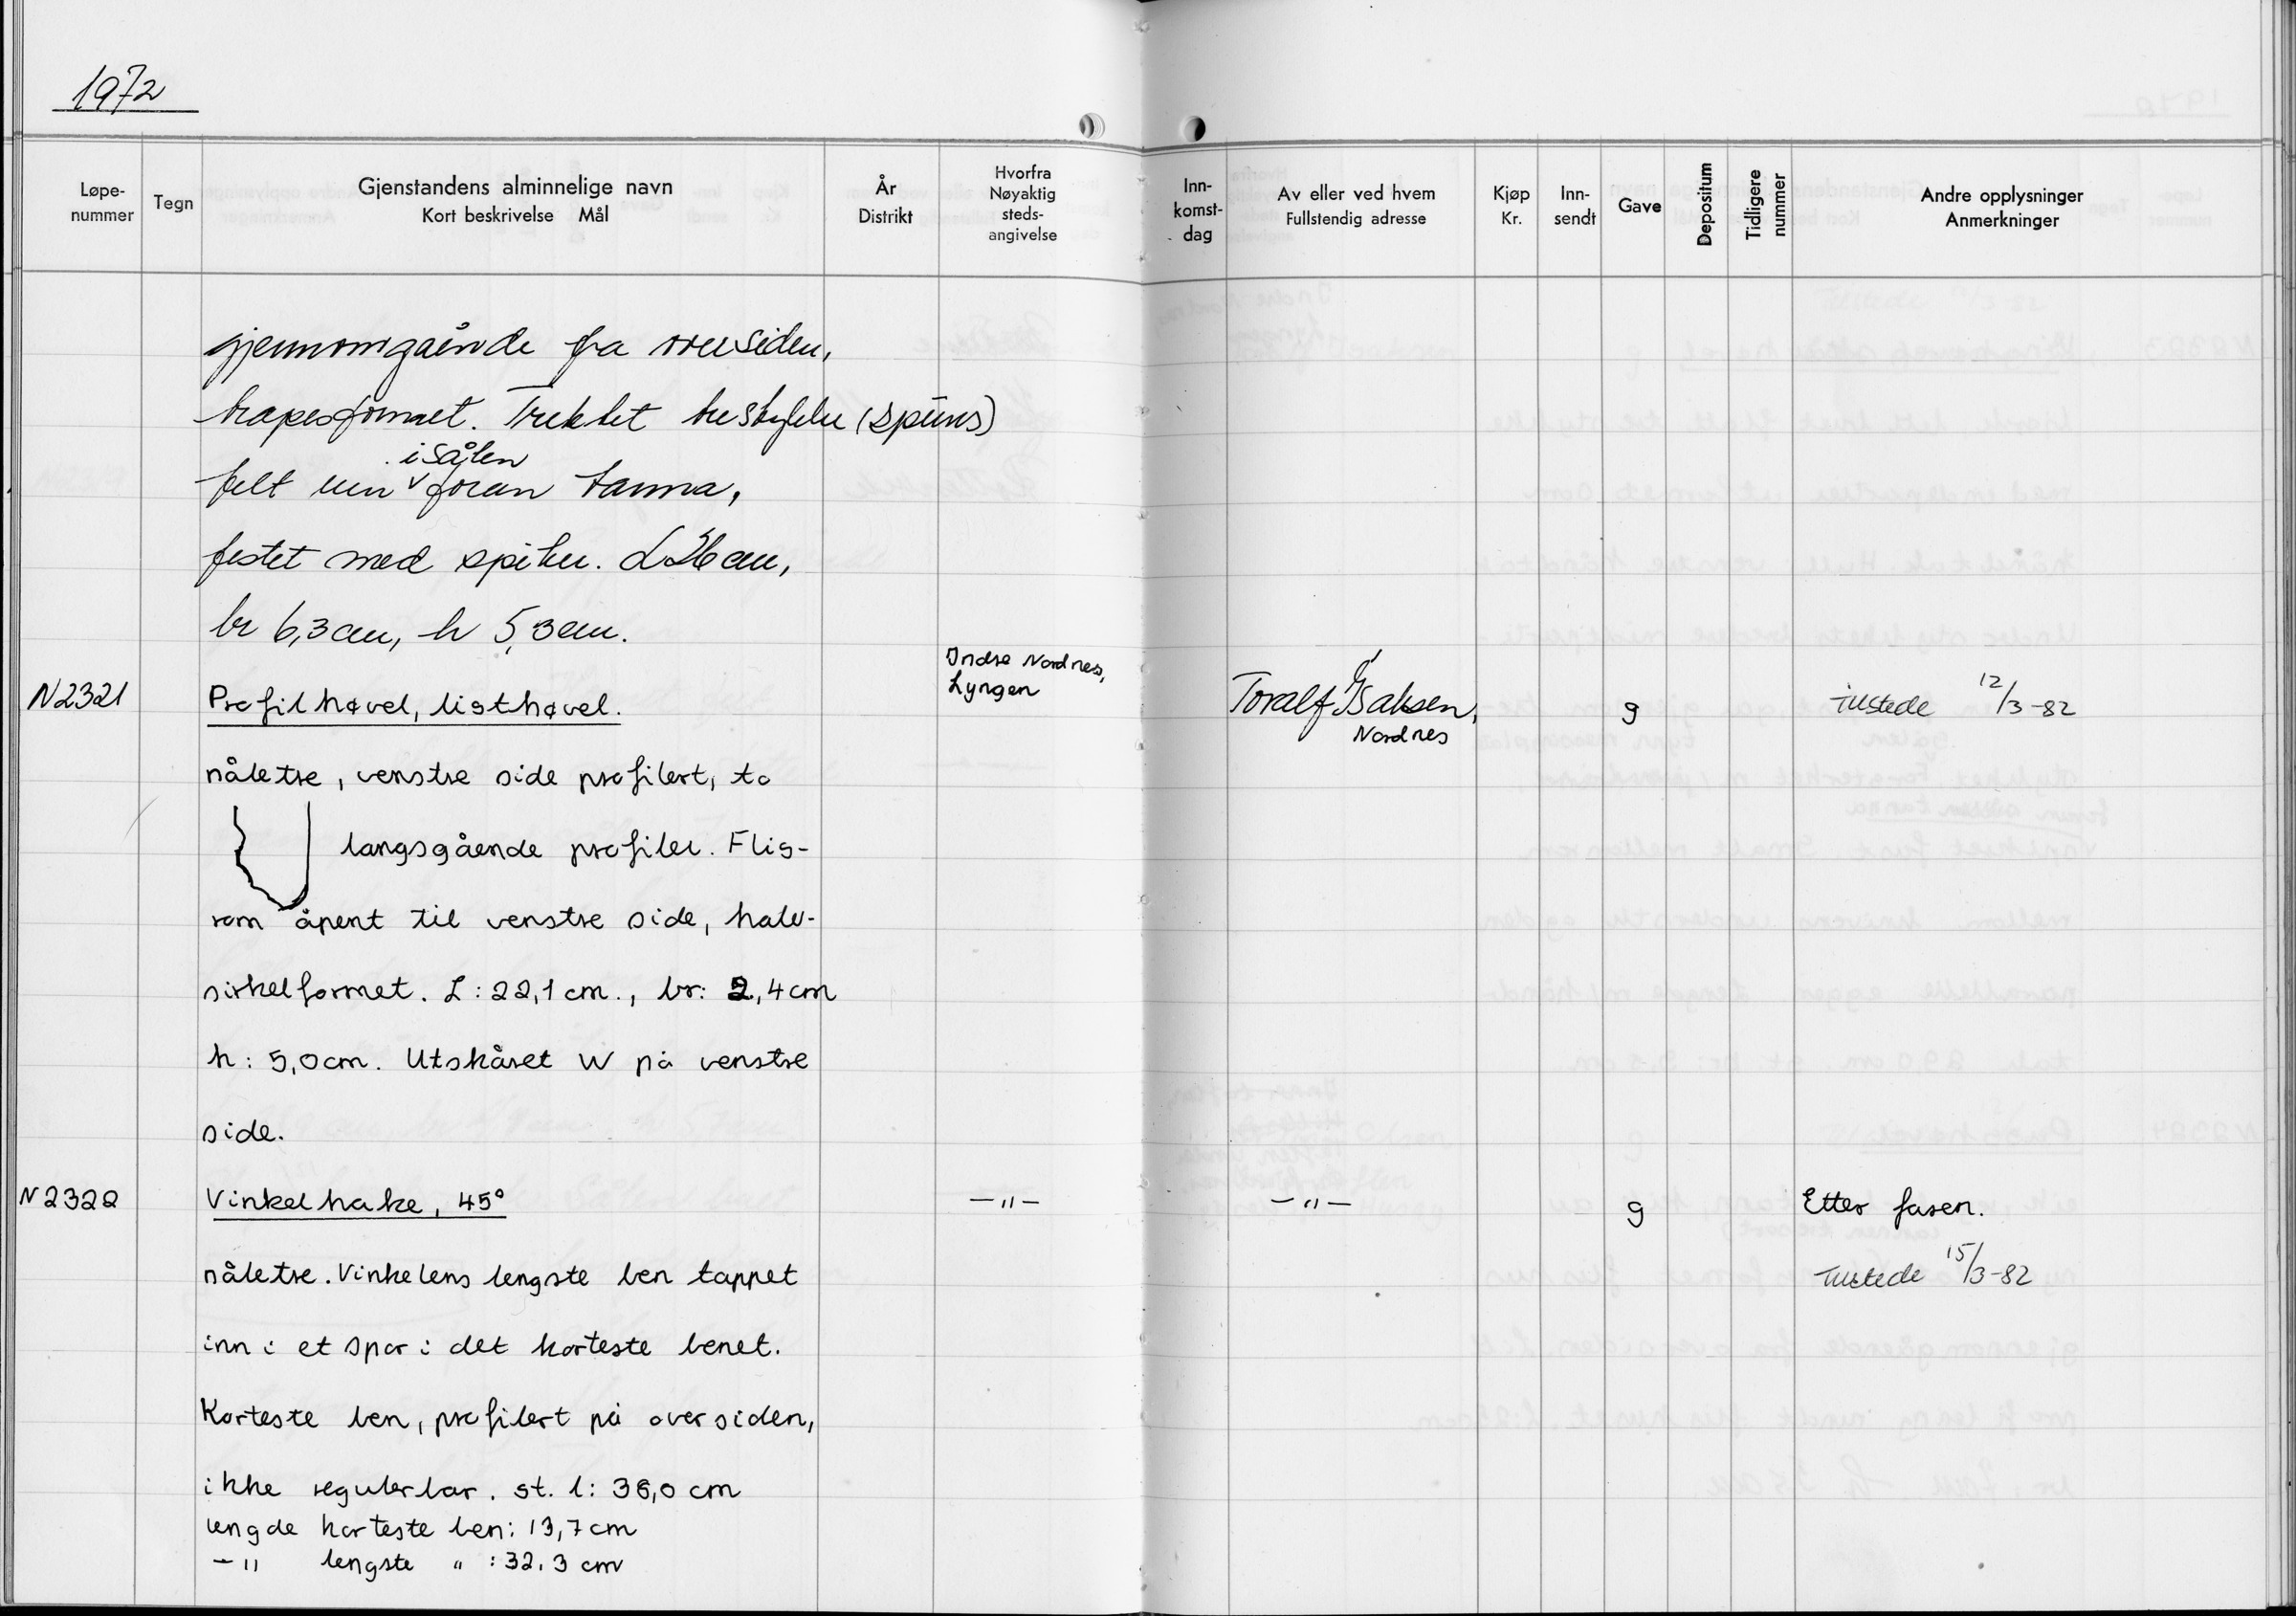 1972
Løpe-
nummer
Tegn
Gjenstandens alminnelige navn
Kort beskrivelse Mål
År
Distrikt
Hvorfra
Nøyaktig
steds-
angivelse
Inn-
komst-
dag
Av eller ved hvem
Fullstendig adresse
Kjøp
Kr.
Inn-
sendt
Gave
Depositum
Tidligere
nummer
Andre opplysninger
Anmerkninger
gjennomgående fra oversiden,
trapesformet. Trekktet trestykke (spuns)
i sålen
felt inn foran tanna,
festet med spiker. L 26 cm,
br 6,3 cm, h 5,3 cm.
N2321 Profilhøvel, listhøvel. Indre Nordnes, Lyngen Toralf Isaksen, Nordnes g tilstede 12/3-82
nåletre, venstre side profilert, to
langsgående profiler. Flis-
rom åpent til venstre side, halv-
sirkelformet. L: 22,1 cm., br: 2,4 cm
h: 5,0 cm. Utskåret W på venstre
side.
N2322 Vinkelhake, 45° —"— —"— g Etter faren.
nåletre. Vinkelens lengste ben tappet tilstede 15/3-82
inn i et spor i det korteste benet.
Korteste ben, profilert på oversiden,
ikke regulerbar. st. l: 36,0 cm
lengde korteste ben: 13,7 cm
—" lengste " : 32.3 cm